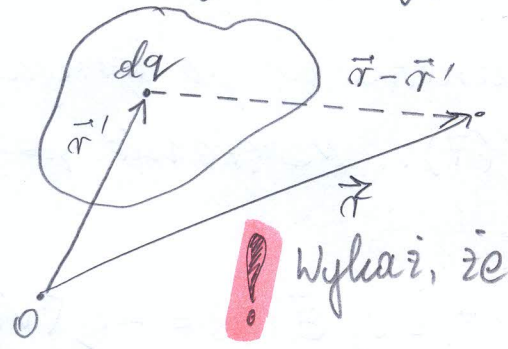 dq
r⃗ - r⃗'
r⃗'
r⃗
! Wykaż, że
O